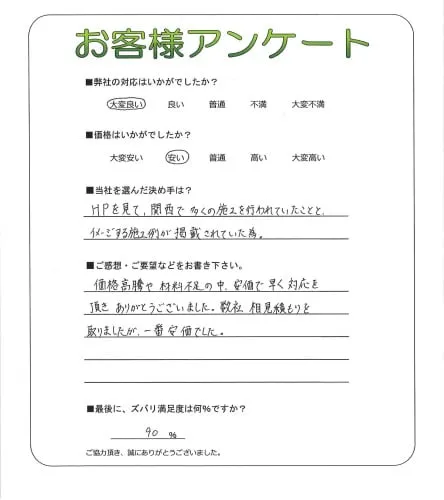 お客様アンケート
■弊社の対応はいかがでしたか？
大変良い 良い 普通 不満 大変不満
■価格はいかがでしたか？
大変安い 安い 普通 高い 大変高い
■当社を選んだ決め手は？
HPを見て、関西で多くの施工を行われていたことと、
イメージする施工例が掲載されていた為。
■ご感想・ご要望などをお書き下さい。
価格高騰や材料不足の中、安価で早く対応を
頂きありがとうございました。数社相見積もりを
取りましたが、一番安価でした。
■最後に、ズバリ満足度は何％ですか？
90 ％
ご協力頂き、誠にありがとうございました。